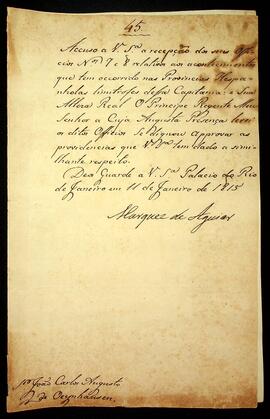 45.
Accuso a V. Sª a recepção dos seus Offi-
cios Nºs 7 e 8 relativos aos acontecimentos
que tem occorrido nas Provincias Hespa-
nholas limitrofes dessa Capitania: e Sua
Alteza Real O Principe Regente Meu
Senhor a Cuja Augusta Presença levei
os ditos Officios Se Dignou approvar as
providencias que V. Sª tem dado a simi-
lhante respeito.
Deos Guarde a V. Sª Palacio do Rio
de Janeiro em 11 de Janeiro de 1815
Marquez de Aguiar
João Carlos Augusto
de Oeynhausen.